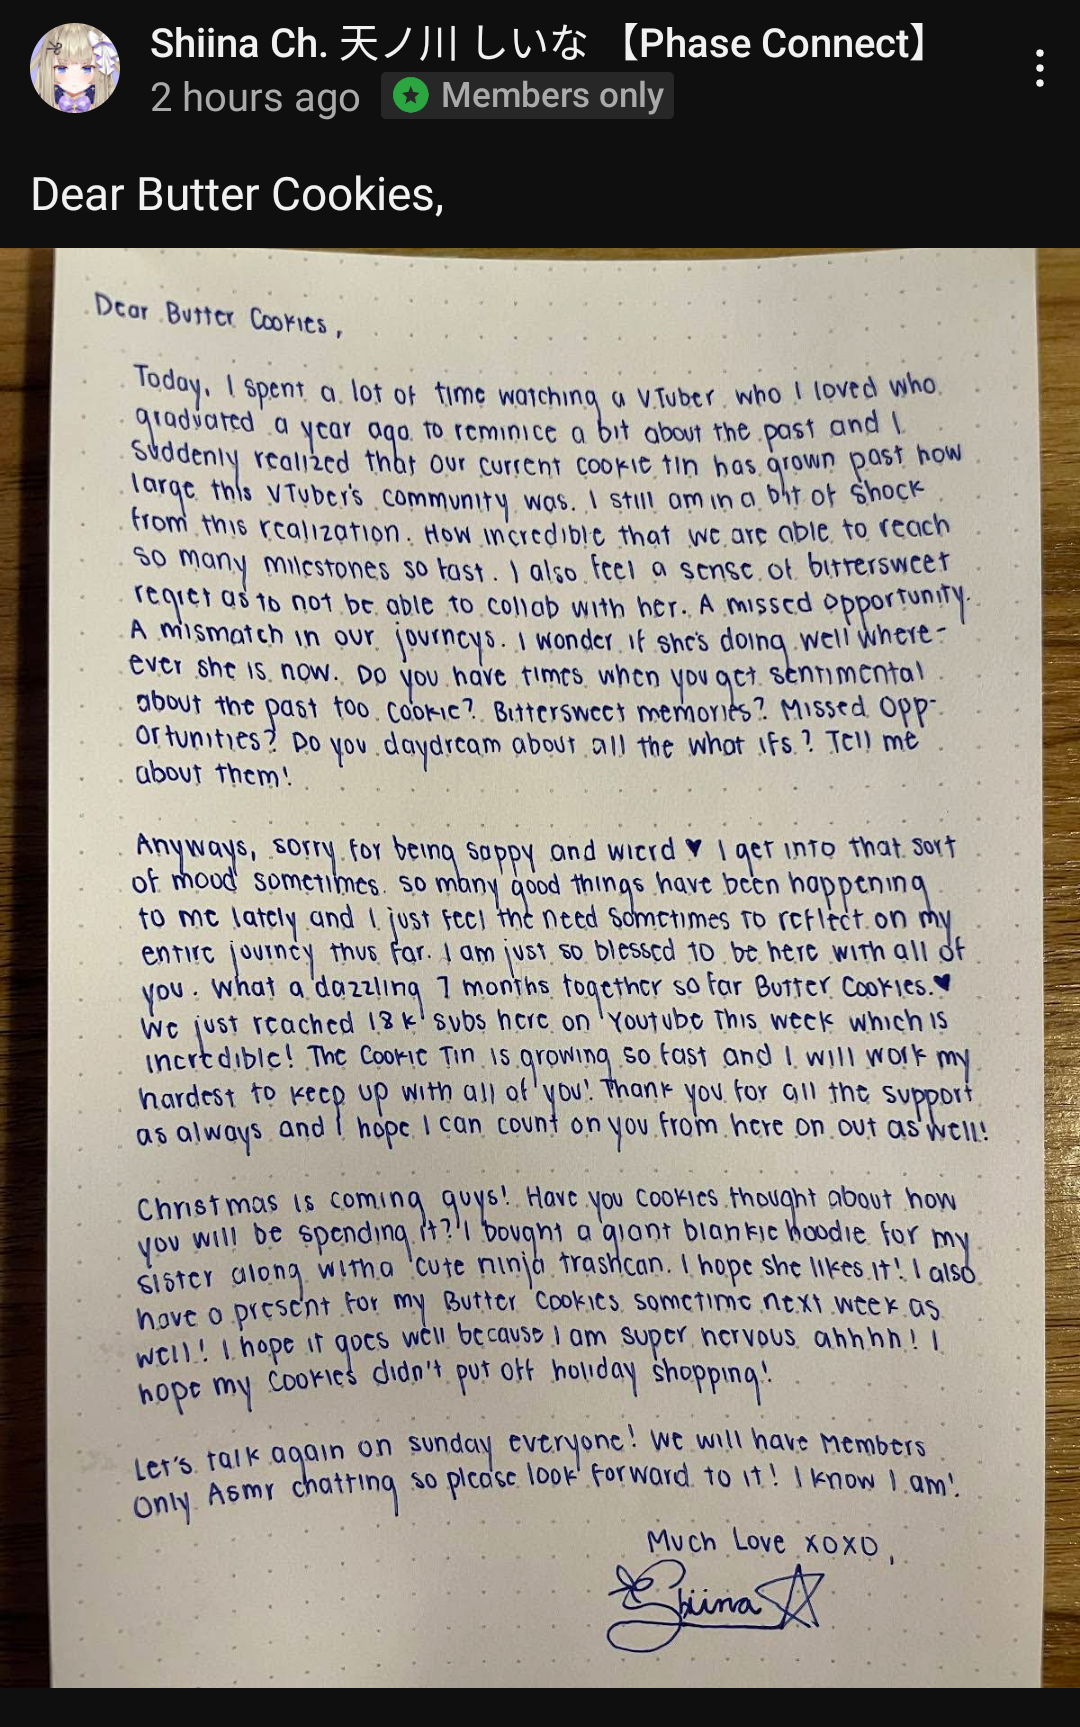 Shiina Ch. 天ノ川 しいな 【Phase Connect】
2 hours ago Members only
Dear Butter Cookies,
Dear Butter Cookies,
Today, I spent a lot of time watching a VTuber who I loved who
graduated a year ago to reminice a bit about the past and I
suddenly realized that our current cookie tin has grown past how
large this VTuber's community was. I still am in a bit of shock
from this realization. How incredible that we are able to reach
so many milestones so fast. I also feel a sense of bittersweet
regret as to not be able to collab with her. A missed opportunity.
A mismatch in our journeys. I wonder if she's doing well where-
ever she is now. Do you have times when you get sentimental
about the past too Cookie? Bittersweet memories? Missed Opp-
ortunities? Do you daydream about all the what ifs? Tell me
about them!
Anyways, sorry for being sappy and wierd ♥ I get into that sort
of mood sometimes. so many good things have been happening
to me lately and I just feel the need sometimes to reflect on my
entire journey thus far. I am just so blessed to be here with all of
you. What a dazzling 7 months together so far Butter Cookies.♥
We just reached 18k subs here on Youtube this week which is
incredible! The Cookie Tin is growing so fast and I will work my
hardest to keep up with all of you! Thank you for all the support
as always and I hope I can count on you from here on out as well!
Christmas is coming guys! Have you cookies thought about how
you will be spending it? I bought a giant blankie hoodie for my
sister along with a cute ninja trashcan. I hope she likes it! I also
have a present for my Butter Cookies sometime next week as
well! I hope it goes well because I am super nervous ahhhh! I
hope my Cookies didn't put off holiday shopping!
Let's talk again on sunday everyone! We will have Members
Only Asmr chatting so please look forward to it! I know I am!
Much Love XOXO,
Shiina